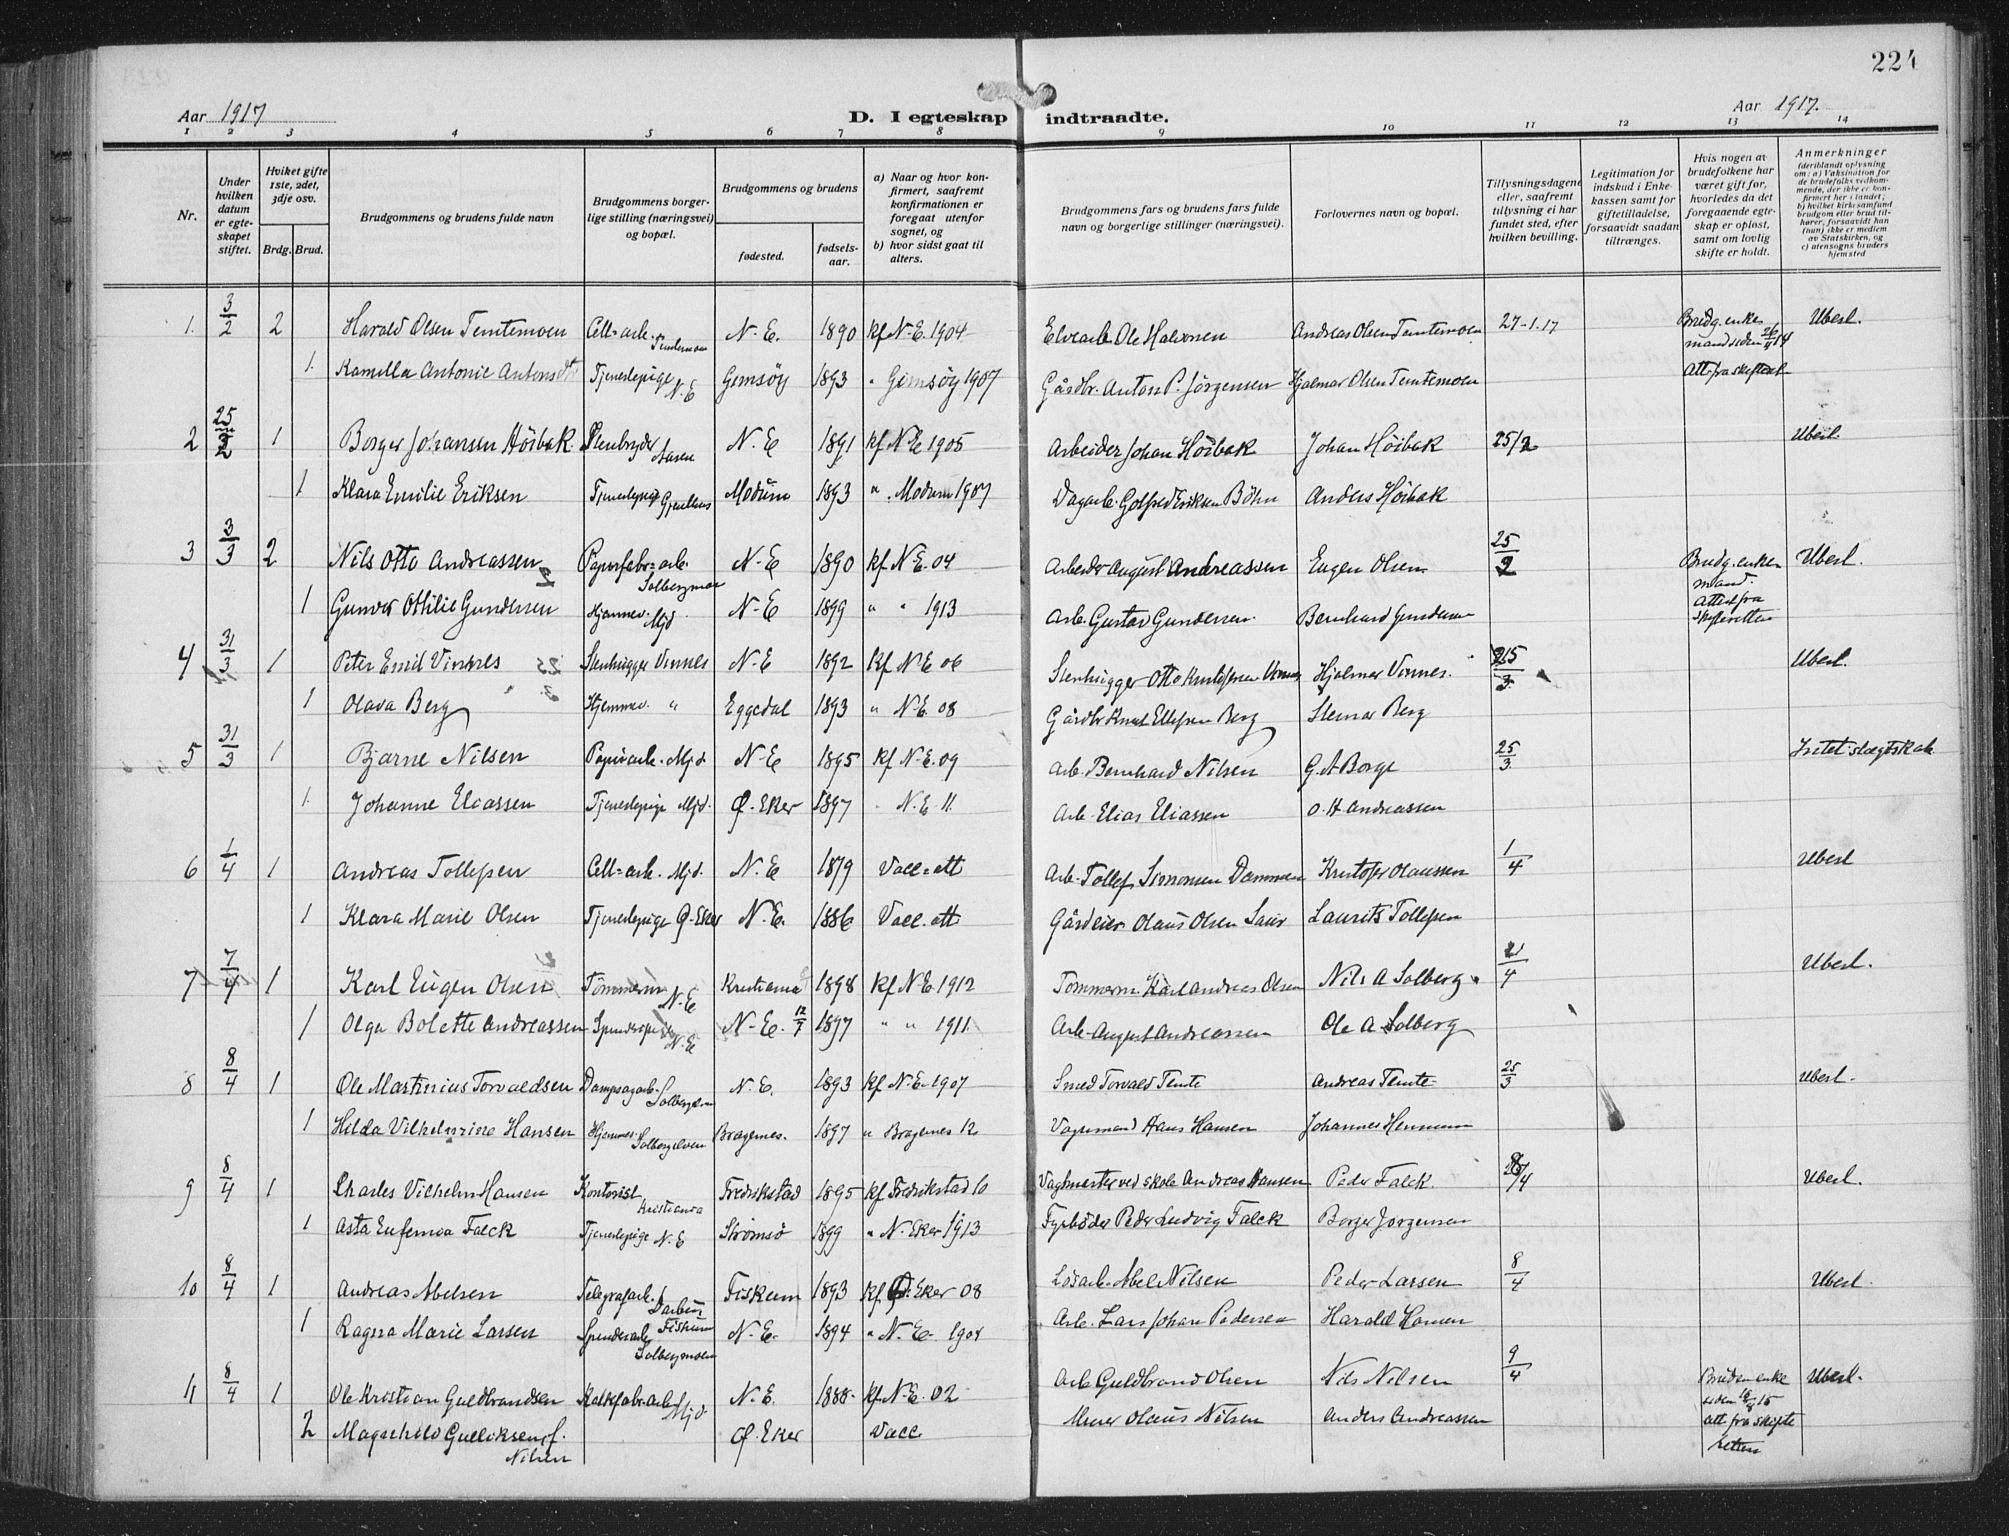 224
Aar 1917
D. I egteskap indtraadte.
Aar 1917.
1 2 3 4 5 6 7 8 9 10 11 12 13 14
Nr.
Under hvilken datum er egteskapet stiftet.
Hvilket gifte 1ste, 2det, 3dje osv.
Brdg. Brud.
Brudgommens og brudens fulde navn
Brudgommens borgerlige stilling (næringsvei) og bopæl.
Brudgommens og brudens
fødested.
fødselsaar.
a) Naar og hvor konfirmert, saafremt konfirmationen er foregaat utenfor sognet, og
b) hvor sidst gaat til alters.
Brudgommens fars og brudens fars fulde navn og borgerlige stillinger (næringsvei).
Forlovernes navn og bopæl.
Tillysningsdagene eller, saafremt tillysning ei har fundet sted, efter hvilken bevilling.
Legitimation for indskud i Enkekassen samt for giftetilladelse, forsaavidt saadan tiltrænges.
Hvis nogen av brudefolkene har været gift før, hvorledes da det foregaaende egteskap er opløst, samt om lovlig skifte er holdt.
Anmerkninger
(deriblandt oplysning om: a) Vaksination for de brudefolks vedkommende, der ikke er konfirmert her i landet; b) hvilket kirkesamfund brudgom eller brud tilhører, forsaavidt han (hun) ikke er medlem av Statskirken, og c) utensogns bruders hjemsted
1. 3/2 2 Harald Olsen Temtemoen Cell=arb. N-E. 1890 kf N-E. 1904 Elvearb Ole Halvorsen Andreas Olsen Temtemoen 27-1.17 Brudg. enkemand siden 26/4 14 Ubesl.
1. Kamilla Antonie Antonsdtr Tjenestepige N.E Gimsøy 1893 " Gimsøy 1907 Gårdbr. Anton P. Jörgensen Hjalmar Olsen Temtemoen Att. fra skifteret
2 25/2 1 Borger Johansen Höibak Åasen N.E 1891 kf N.E 1905 Arbeider Johan Höibak Johan Höibak 25/2 Ubesl.
1 Klara Emilie Eriksen Tjenestepige Modum 1893 " . Modum 1907 Dagarb. Eriksen Böhn Anders Höibak
3 3/3 2 Nils Otto Andreassen Papirfabr=arb. Solbergmoen N-E 1890 kf N.E. 04 Arbeider August Andreassen Eugen Olsen 25/2 Brudg. enkemand. Ubesl.
1 Gunvor Ottilie Gundersen Hjemmev. Mjd. N-E 1899 " " 1913 Arb. Gustav Gundersen. Bernhard Gundersen Attest fra skifteretten
4 31/3 1 Peter Emil Vinnes Stenhugger Vinnes N-E 1892 kf N.E 06 Stenhugger Otto Kristofersen Vinnes Hjalmar Vinnes. 25/3 Ubesl.
1 Olava Berg Hjemmev. " Eggedal 1893 " N.E. 08 Gårdbr Knut Ellefsen Berg Steinar Berg
5 31/3 1 Bjarne Nilsen Papirarb. Mjd. N-E 1895 kf N-E. 09 Arb. Bernhard Nilsen G. A Borge 25/3. Intet slegtskab
1. Johanne Eliassen Tjenestepige Mjd. Ø. Eker 1897 " N.E 11. Arb. Elias Eliassen O. H Andreassen
6 1/4 1 Andreas Tollefsen Cell=arb. Mjd. N.E 1879 Vacc=att Arb. Tollef Simonsen Dammen Kristofer Olaussen 1/4 Ubesl
1 Klara Marie Olsen Tjenestepige Ø-Eker N.E. 1886 Vacc. att Gårdeier Olaus Olsen Laurits Tollefsen
7 7/4 1 Karl Eugen Olsen Tömmerm N.E Kristiania 1898 kf N.E 1912 Tömmerm. Karl Andreas Olsen Nils A Solberg. /4 Ubesl.
1 Olga Bolette Andreassen N.E N-E. 12/7 1897 " " 1911. Arb August Andreassen Ole A Solberg
8 8/4 1 Ole Martinius Torvaldsen Dampsagarb. N.E. 1893 kf N.E. 1907 Smed Torvald Temte Andreas Temte 25/3 Ubesl.
1 Hilda Vilhelmine Hansen Hjemmev. Solbergelven Bragernes. 1897 " Bragernes 12 Vognmand Hans Hansen Johannes Hermann
9 8/4 1 Charles Vilhelm Hansen Kontorist Kristiania Fredrikstad 1895 kf Fredrikstad 10 Vagtmester ved skole Andreas Hansen Peder Falck. 8/4 Ubesl.
1 Asta Eufemia Falck Tjenestepige N.E Strømsø 1899 " N-Eker 1913 Fyrbøder Peder Ludvig Falck Borger Jørgensen
10 8/4 1 Andreas Abelsen Telegrafarb. Darbu Fiskum Fiskum 1893 kf Ø. Eker 08 Lösarb. Abel Nilsen Peder Larsen 8/4 Ubesl.
1 Ragna Marie Larsen Solbergmoen N.E. 1894 " N-E- Arb. Lars Johan Pedersen Harald Hansen
11 8/4 1 Ole Kristian Guldbrandsen Kalkfabr=arb Mjd N.E. 1888. kf N-E. 02 Arb Guldbrand Olsen Nils Nilsen 9/4 Bruden enke siden 15 att fra skifteretten Ubesl.
2 Magnhild Gulliksen f. Nilsen Ø. Eker Vacc. Murer Olaus Nilsen Anders Andreassen